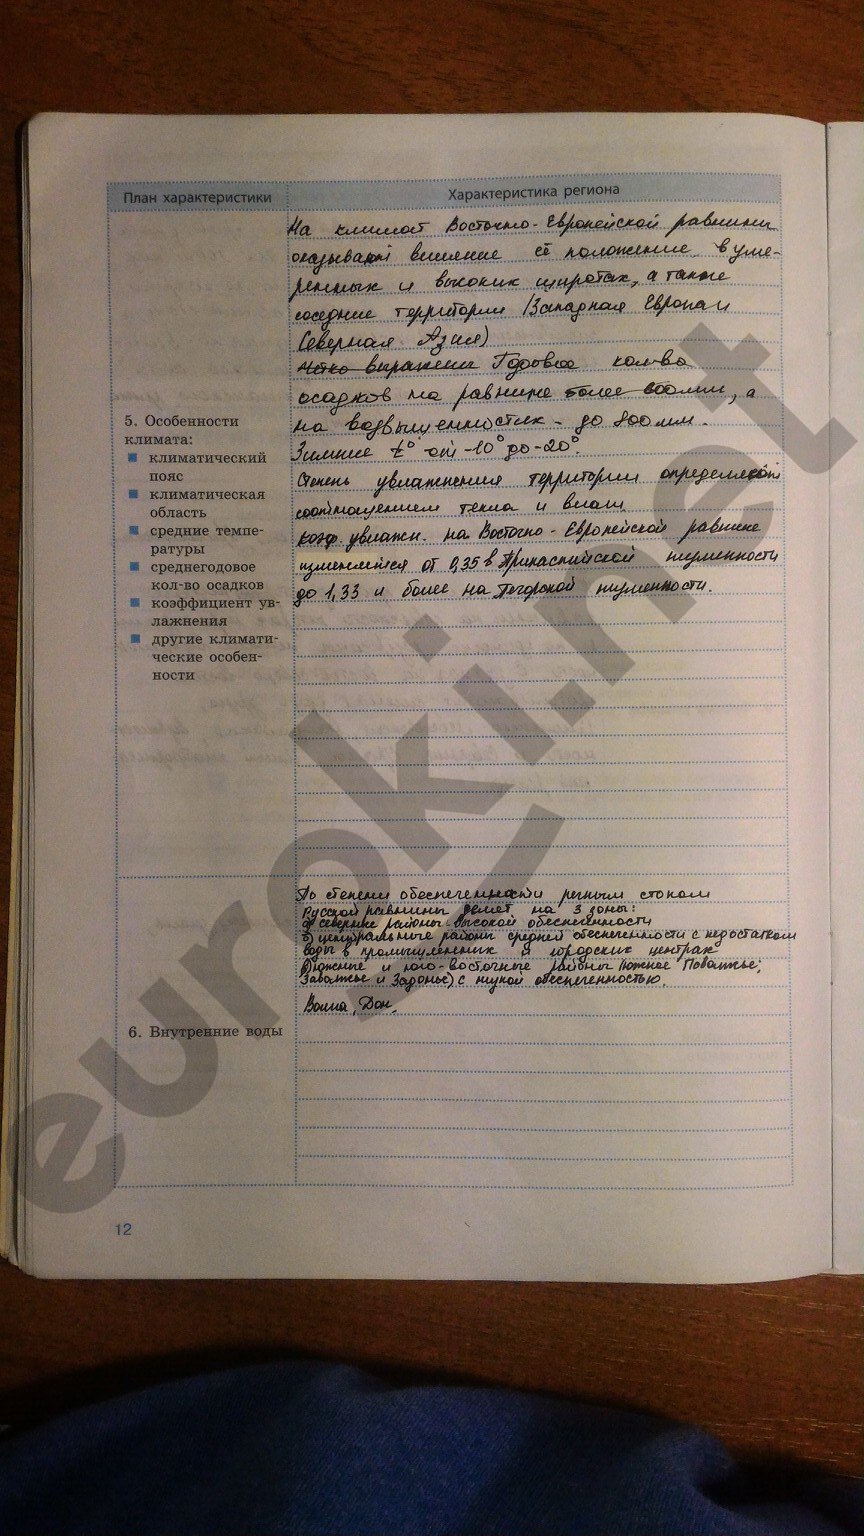 План характеристики
Характеристика региона
На климат Восточно-Европейской равнины
оказывают влияние её положение в уме-
ренных и высоких широтах, а также
соседние территории (Западная Европа и
Северная Азия)
Четко выражены Годовое кол-во
осадков на равнине более 600мм, а
на возвышенностях - до 800мм.
Зимние t° от -10° до -20°.
Степень увлажнения территории определяют
соотношением тепла и влаги
коэф. увлажн. на Восточно-Европейской равнине
изменяется от 0,35 в Прикаспийской низменности
до 1,33 и более на Печорской низменности.
5. Особенности
климата:
климатический
пояс
климатическая
область
средние темпе-
ратуры
среднегодовое
кол-во осадков
коэффициент ув-
лажнения
другие климати-
ческие особен-
ности
По степени обеспеченности речным стоком
Русской равнины делят на 3 зоны:
а) северные районы высокой обеспеченности
б) центральные районы средней обеспеченности с недостатком
воды в промышленных и городских центрах
в) южные и юго-восточные районы (южное Поволжье,
Заволжье и Задонье) с низкой обеспеченностью.
Волга, Дон.
6. Внутренние воды
12
euroki.net